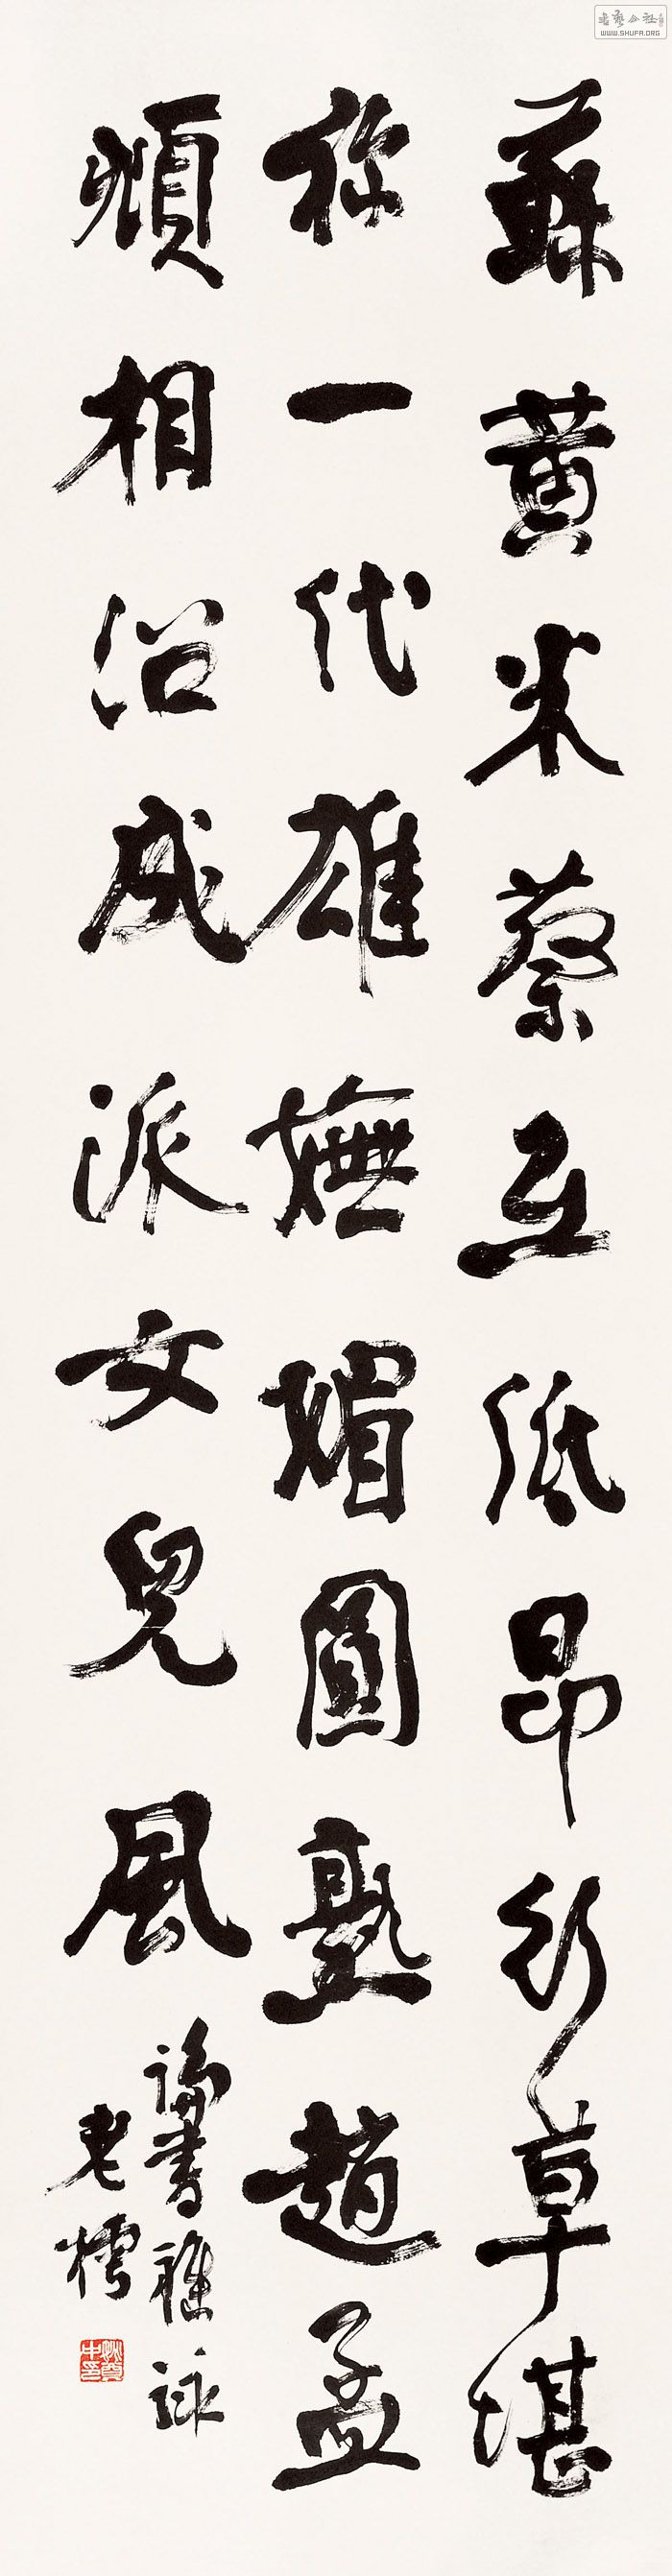 蘇黃米蔡互低昂行草堪
称一代雄嫵媚圓熟趙孟
頫相沿成派女兒風
論書雜詠
老樗
姚奠中印
WWW.SHUFA.ORG